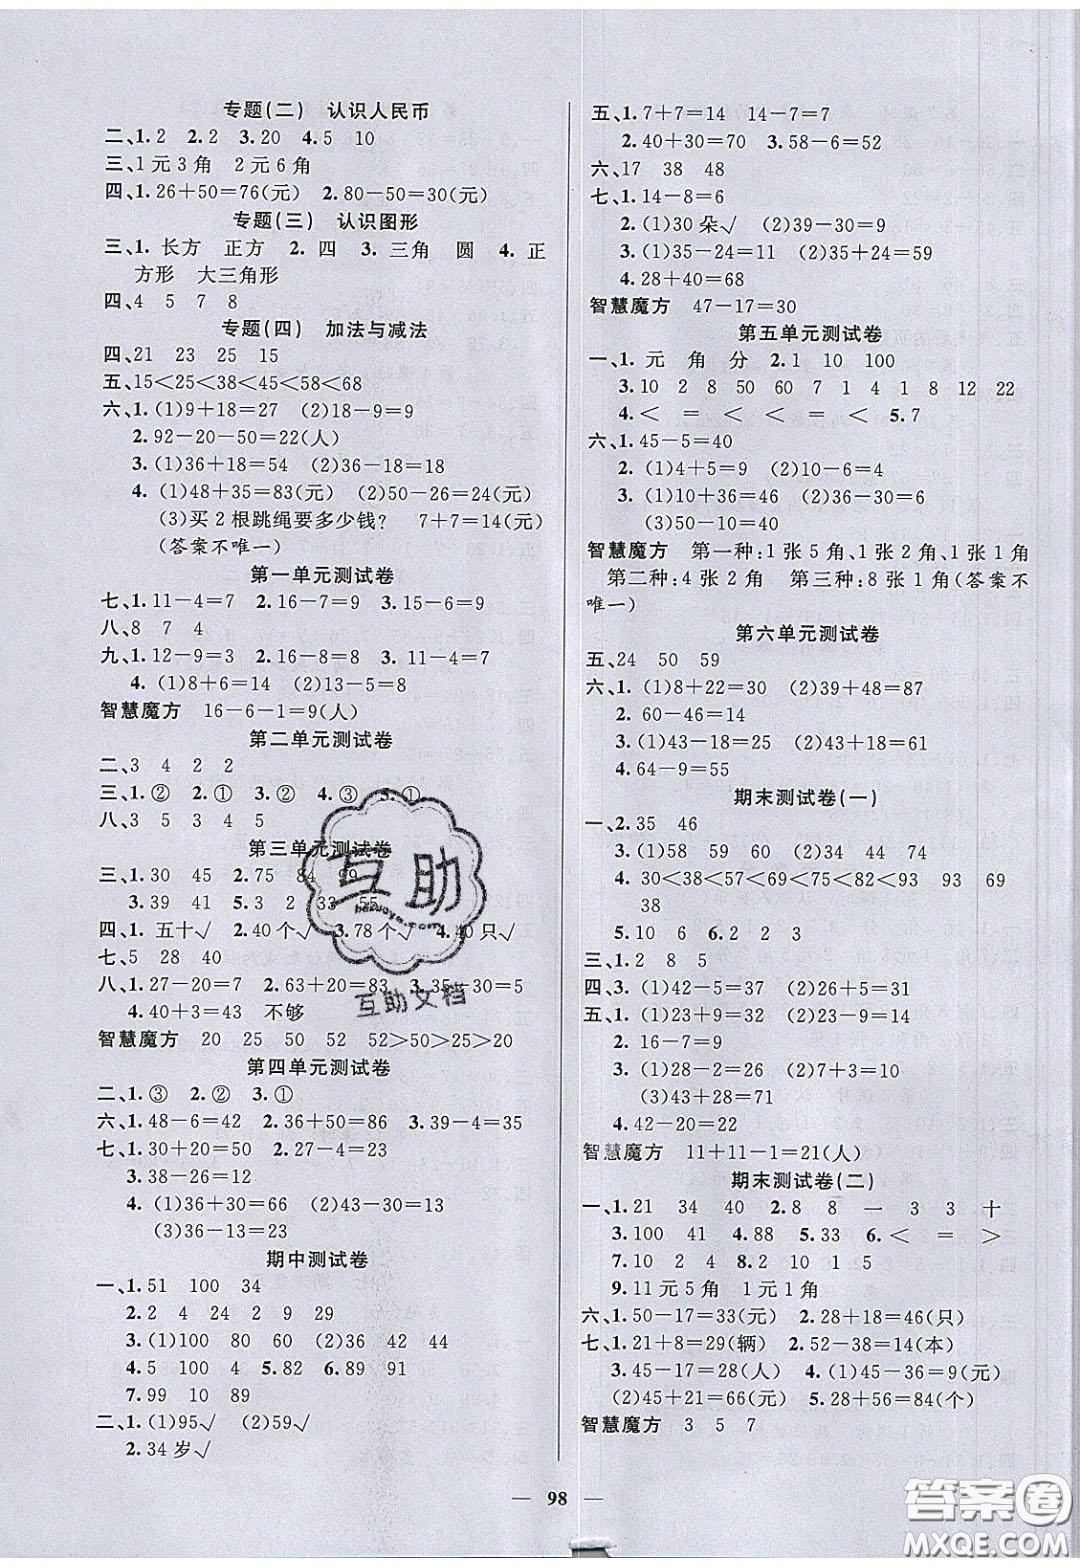 专题(二)　认识人民币
二、1.2　2.2　3.20　4.5　10
三、1元3角　2元6角
四、1.26+50=76(元)　2.80-50=30(元)
专题(三)　认识图形
三、1. 长方　正方　2. 四　3. 三角　圆　4. 正
方形　大三角形
四、4　5　7　8
专题(四)　加法与减法
四、21　23　25　15
五、15<25<38<45<58<68
六、1. (1)9+18=27　(2)18-9=9
2. 92-20-50=22(人)
3. (1)36+18=54　(2)36-18=18
4. (1)48+35=83(元)　(2)50-26=24(元)
(3)买2根跳绳要多少钱?　7+7=14(元)
(答案不唯一)
第一单元测试卷
七、1. 11-4=7　2. 16-7=9　3. 15-6=9
八、8　7　4
九、1. 12-9=3　2. 16-8=8　3. 11-4=7
4. (1)8+6=14　(2)13-5=8
智慧魔方　16-6-1=9(人)
第二单元测试卷
二、3　4　2　2
三、1.②　2.①　3.②　4.③　5.①
八、3　5　3　4　5
第三单元测试卷
三、1.30　45　2.75　84　99
3.39　41　5.3　2　33　55
四、1. 五十√　2.40个√　3.78个√　4.40只√
七、5　28　40
八、1.27-20=7　2.63+20=83　3.35-30=5
4.40+3=43　不够
智慧魔方　20　25　50　52　52>50>25>20
第四单元测试卷
二、1.③　2.②　3.①
六、1.48-6=42　2.36+50=86　3.39-4=35
七、1.30+20=50　2.27-4=23
3.38-26=12
4. (1)36+30=66　(2)43-30=13
(3)36-13=23
期中测试卷
一、1.51　100　34
2.2　4　24　2　9　29
3. (1)100　80　60　(2)36　42　44
4.5　5.82　6.89　91
7.99　10　89
二、1. (1)95√　(2)59√
2.34岁√
五、1.7+7=14　14-7=7
2.40+30=70　3.58-6=52
六、17　38　48
七、1.14-8=6
2. (1)30朵√　(2)39-30=9
3. (1)35-24=11　(2)35+24=59
4.28+40=68
智慧魔方　47-17=30
第五单元测试卷
一、1. 元　角　分　2.1　10　100
3.10　2　8　50　60　7　1　4　1　8　12　22
4.<　=　<　<　=　<　5.7
六、1.45-5=40
2. (1)4+5=9　(2)10-6=4
3. (1)10+36=46　(2)36-30=6
(3)50-10=40
智慧魔方　第一种:1张5角、1张2角、1张1角
第二种:4张2角　第三种:8张1角(答案不
唯一)
第六单元测试卷
五、24　50　59
六、1. (1)8+22=30　(2)39+48=87
2. 60-46=14
3. (1)43-18=25　(2)43+18=61
4. 64-9=55
期末测试卷(一)
一、2.35　46
3. (1)58　59　60　(2)34　44　74
4. 30<38<57<60<75<82<93　93　69
38
5.10　6　6.2　2　3
三、1.2　8　5
四、3. (1)42-5=37　(2)26+5=31
五、1. (1)23+9=32　(2)23-9=14
2. 16-7=9
3. (1)28-2=26　(2)7+3=10
(3)43+28=71
4. 42-20=22
智慧魔方　11+11-1=21(人)
期末测试卷(二)
一、1.21　34　40　2.8　8　一　3　3　十
3.100　41　4.88　5.33　6.<　=　>
7.10　2　4　8.2　10　1　5
9.11元5角　1元1角
六、1.50-17=33(元)　2.28+18=46(只)
七、1.21+8=29(辆)　2.52-38=14(本)
3.45-17=28(人)　4. (1)45-36=9(元)
(2)45+21=66(元)　5.28+56=84(个)
智慧魔方　3　5　7
— 98 —
互助
互助文档
答案卷
MXQE.COM